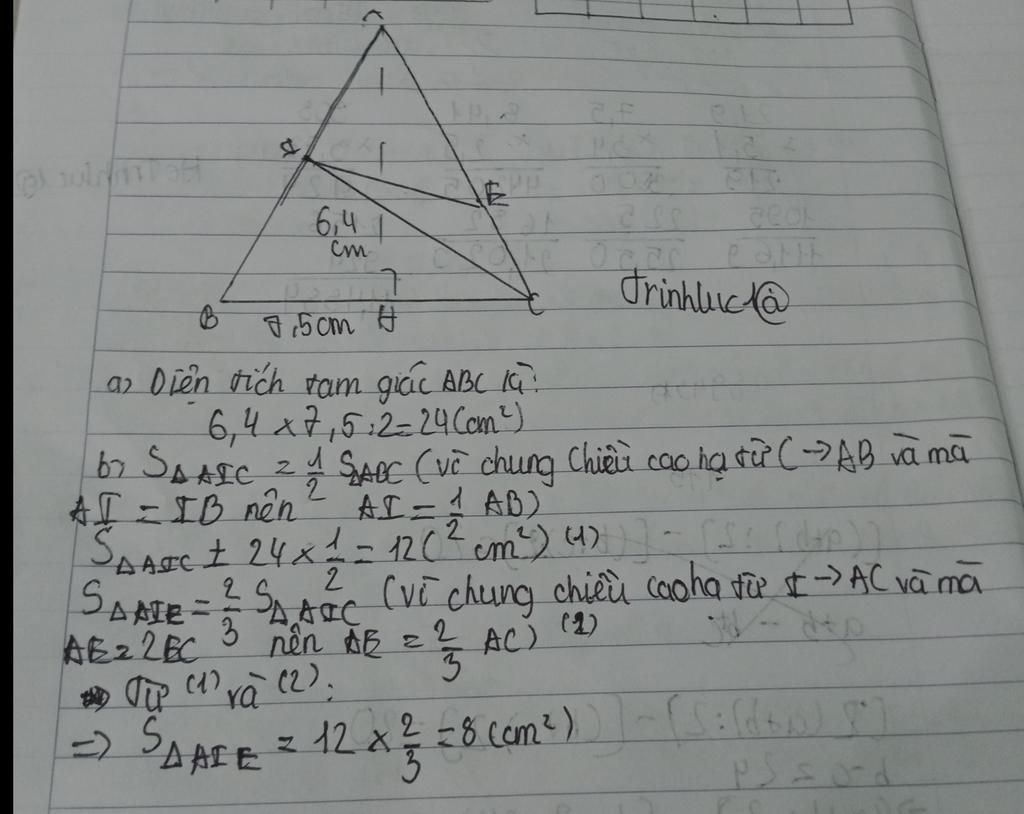 A
I
E
6,4
cm
B
7,5cm H
C
Trinhluc1@
a) Diện tích tam giác ABC là:
6,4 x 7,5 : 2 = 24 (cm²)
b) S△AIC = 1/2 SABC (vì chung chiều cao hạ từ C → AB và mà
AI = IB nên AI = 1/2 AB)
S△AIC = 24 x 1/2 = 12 (cm²) (1)
S△AIE = 2/3 S△AIC (vì chung chiều cao hạ từ I → AC và mà
AE = 2EC nên AE = 2/3 AC) (2)
Từ (1) và (2):
=> S△AIE = 12 x 2/3 = 8 (cm²)